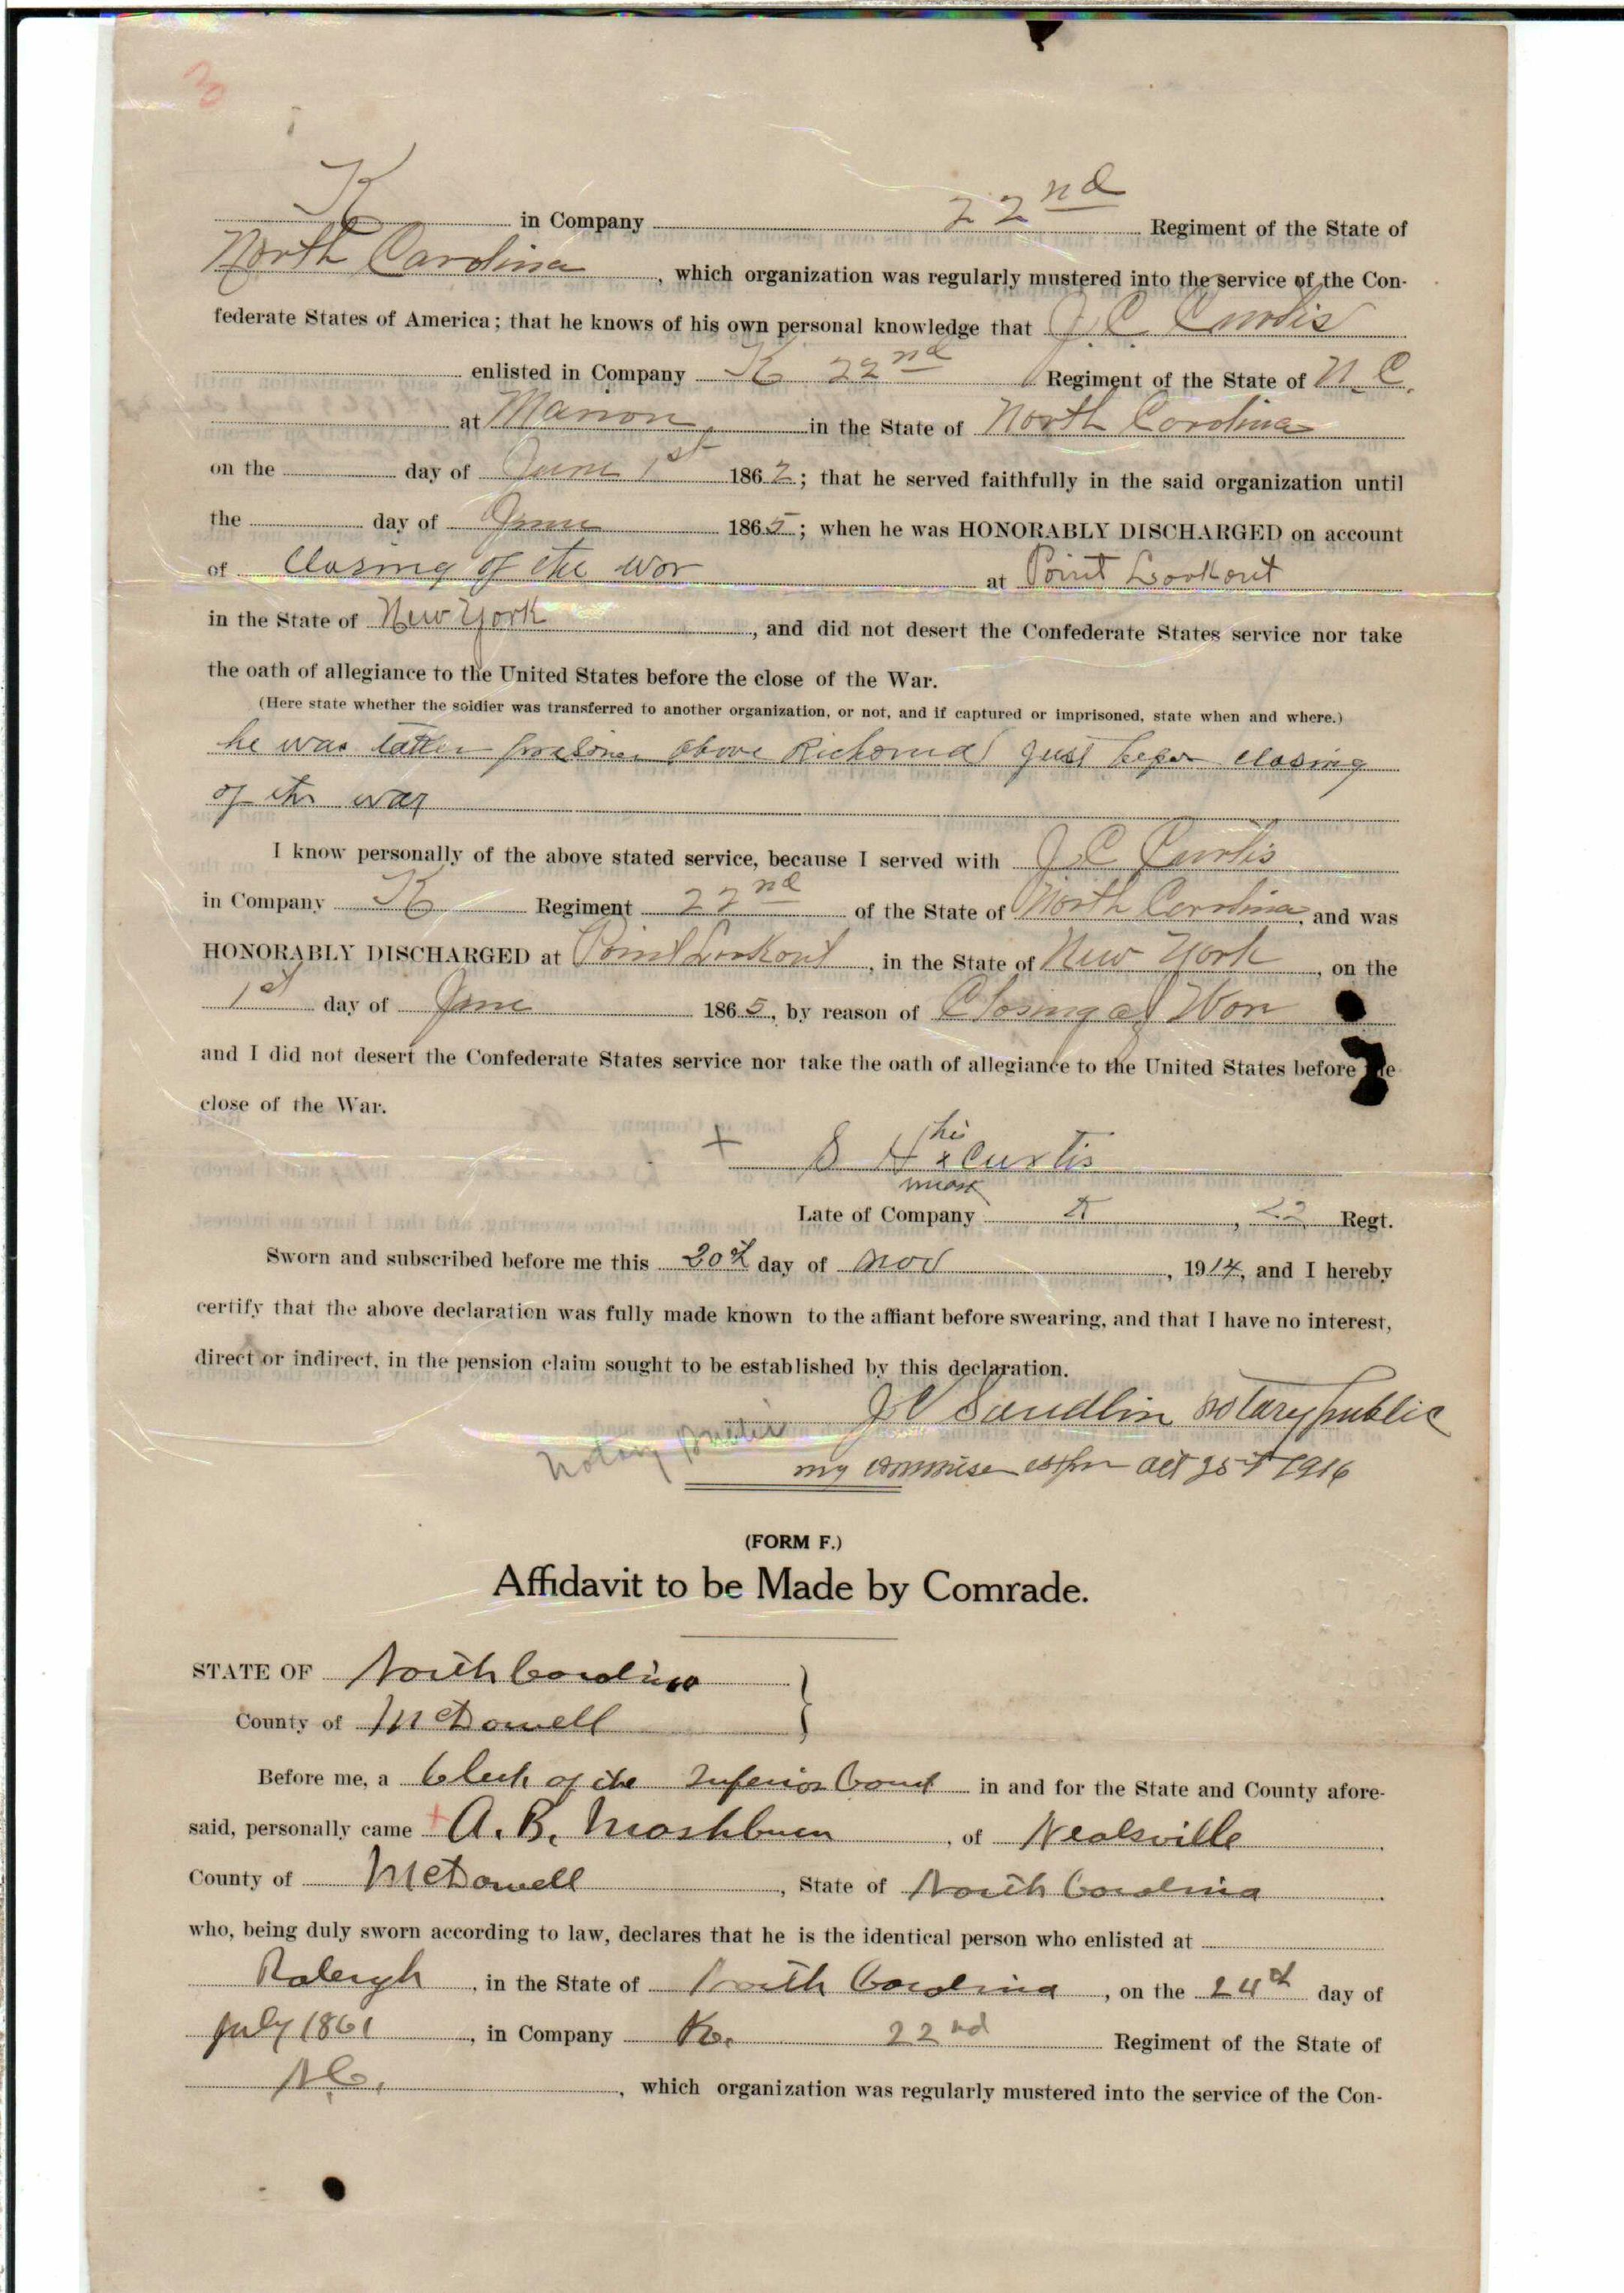 3
K in Company 22nd Regiment of the State of
North Carolina, which organization was regularly mustered into the service of the Con-
federate States of America; that he knows of his own personal knowledge that J. C. Curtis
enlisted in Company K 22nd Regiment of the State of N. C.
at Marion, in the State of North Carolina
on the day of June 1st 1862; that he served faithfully in the said organization until
the day of June 1865; when he was HONORABLY DISCHARGED on account
of Closing of the wor at Point Lookout
in the State of New York, and did not desert the Confederate States service nor take
the oath of allegiance to the United States before the close of the War.
(Here state whether the soldier was transferred to another organization, or not, and if captured or imprisoned, state when and where.)
he was above just closing
of the war
I know personally of the above stated service, because I served with J C Curtis
in Company K Regiment 22nd of the State of North Carolina, and was
HONORABLY DISCHARGED at Point Lookout, in the State of New York, on the
1st day of June 1865, by reason of Closing of Wor
and I did not desert the Confederate States service nor take the oath of allegiance to the United States before the
close of the War.
his
+ S H x Curtis
mark
Late of Company K, 22 Regt.
Sworn and subscribed before me this day of Nov, 1914, and I hereby
certify that the above declaration was fully made known to the affiant before swearing, and that I have no interest,
direct or indirect, in the pension claim sought to be established by this declaration.
J V Sandlin notary public
Notary Public
my 1916
(FORM F.)
Affidavit to be Made by Comrade.
STATE OF North Carolina
County of McDowell
Before me, a Clerk of the Superior Court in and for the State and County afore-
said, personally came + A. B. Mashburn, of Nealsville
County of McDowell, State of North Carolina
who, being duly sworn according to law, declares that he is the identical person who enlisted at
Raleigh, in the State of North Carolina, on the 24th day of
July 1861, in Company K. 22nd Regiment of the State of
N.C., which organization was regularly mustered into the service of the Con-